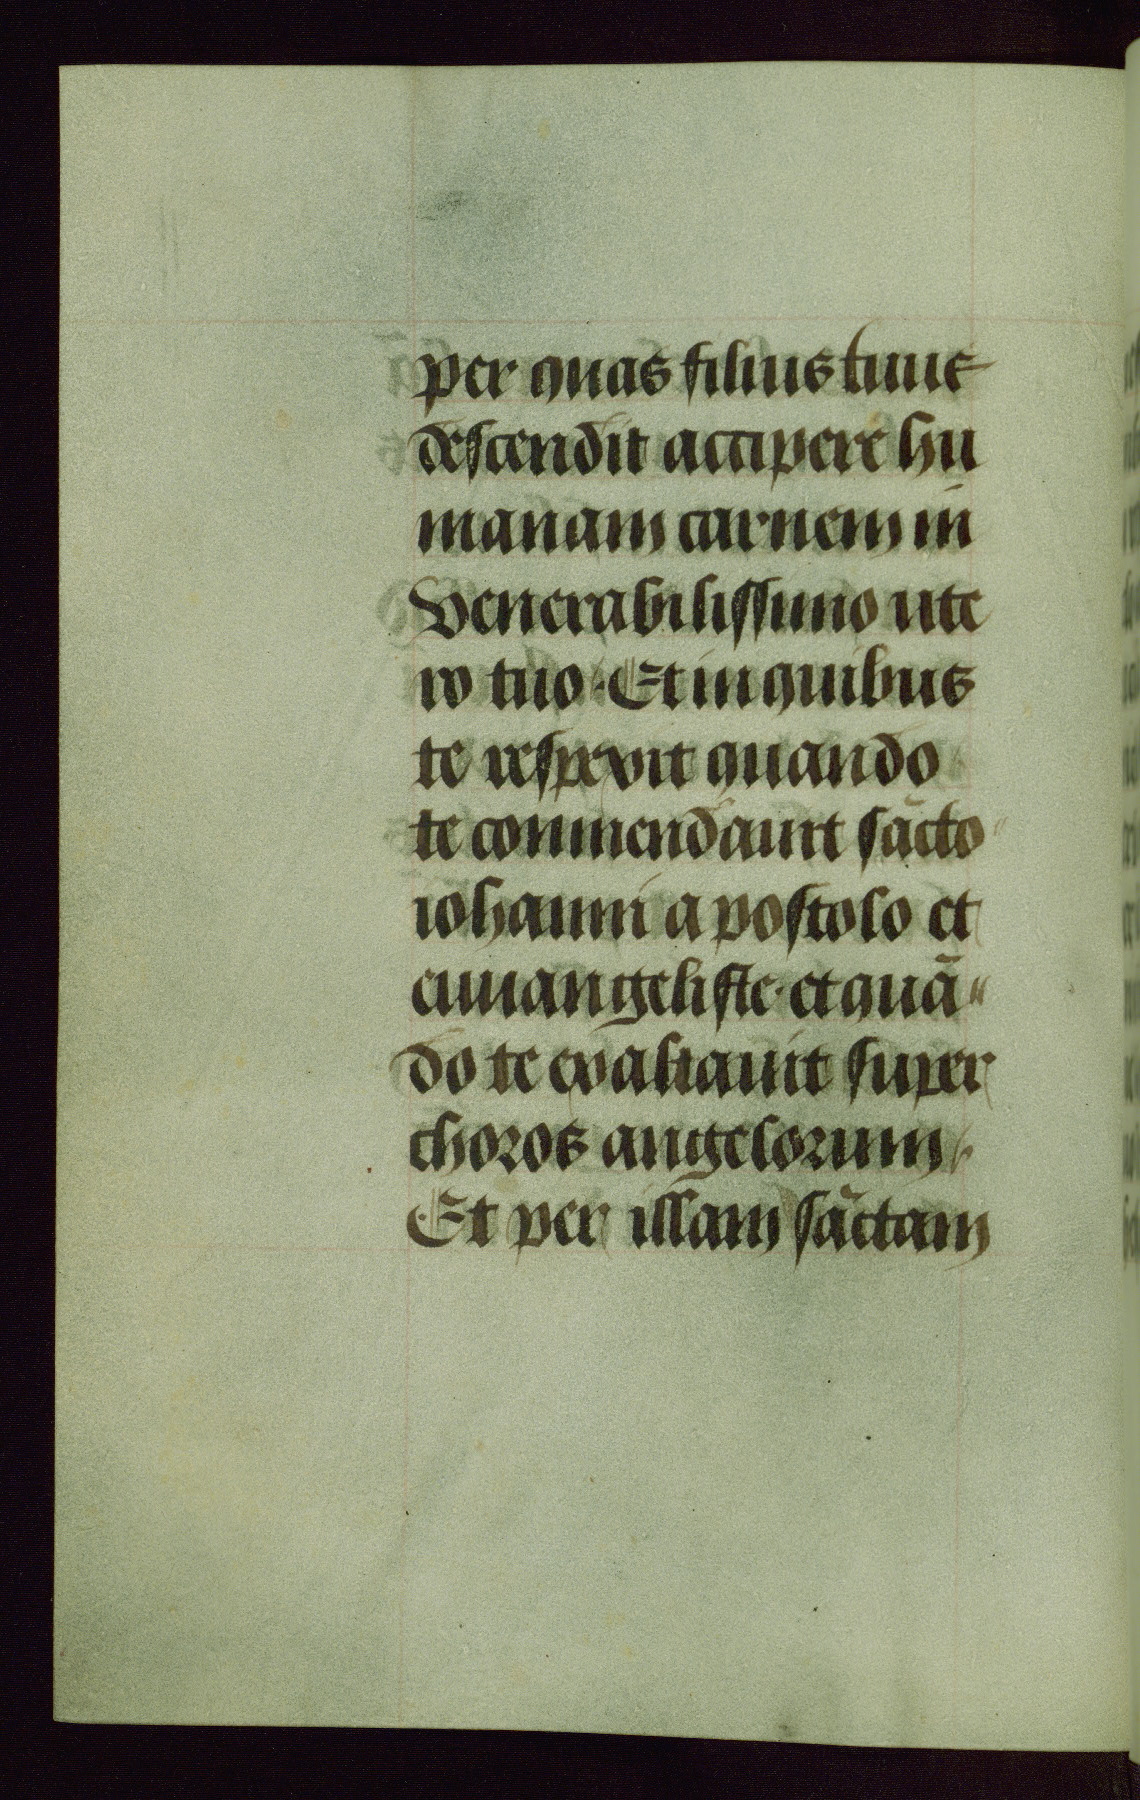 per quas filius tuus
descendit accipere hu
manam carnem in
Venerabilissimo ute
ro tuo. Et in quibus
te respexit quando
te conmendauit sācto
iohanni apostolo et
euuangeliste. et quā
do te exaltauit super
choros angelorum
Et per illam sāctam